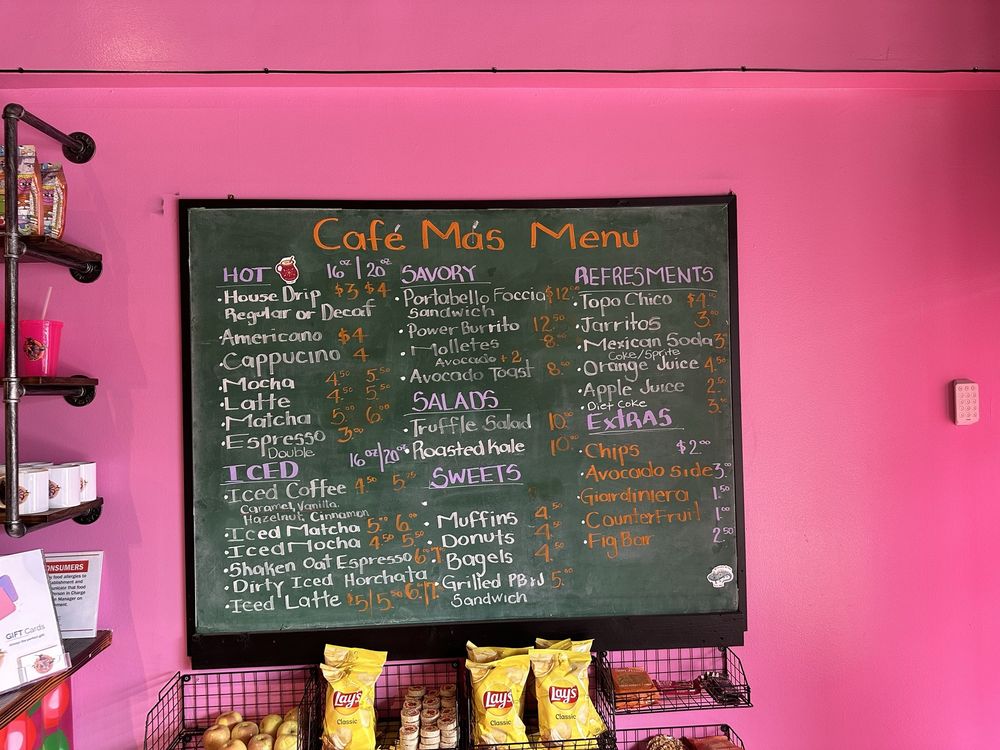 Café Más Menu
HOT 16oz/20oz
• House Drip $3 $4
Regular or Decaf
• Americano $4
• Cappucino 4
• Mocha 4.50 5.50
• Latte 4.50 5.50
• Matcha 5.00 6.00
• Espresso 3.00
Double
ICED 16oz/20oz
• Iced Coffee 4.50 5.75
Caramel, Vanilla,
Hazelnut, Cinnamon
• Iced Matcha 5.00 6.00
• Iced Mocha 4.50 5.50
• Shaken Oat Espresso 6.00 7.00
• Dirty Iced Horchata 6.00/7.00
• Iced Latte $5/5.50
SAVORY
• Portabello Foccia $12.00
Sandwich
• Power Burrito 12.50
• Molletes 8.00
Avocado +2
• Avocado Toast 8.50
SALADS
• Truffle Salad 10.00
• Roasted Kale 10.00
SWEETS
• Muffins 4.50
• Donuts 4.50
• Bagels 4.50
• Grilled PB&J 5.00
Sandwich
REFRESMENTS
• Topo Chico $4.00
• Jarritos 3.00
• Mexican Soda 3.00
Coke/Sprite
• Orange Juice 4.50
• Apple Juice 2.50
• Diet Coke 3.00
EXTRAS
• Chips $2.00
• Avocado side 3.00
• Giardiniera 1.50
• CounterFruit 1.00
• Fig Bar 2.50
CONSUMERS
GIFT Cards
Lay's
Classic
Lay's
Classic
Lay's
Classic